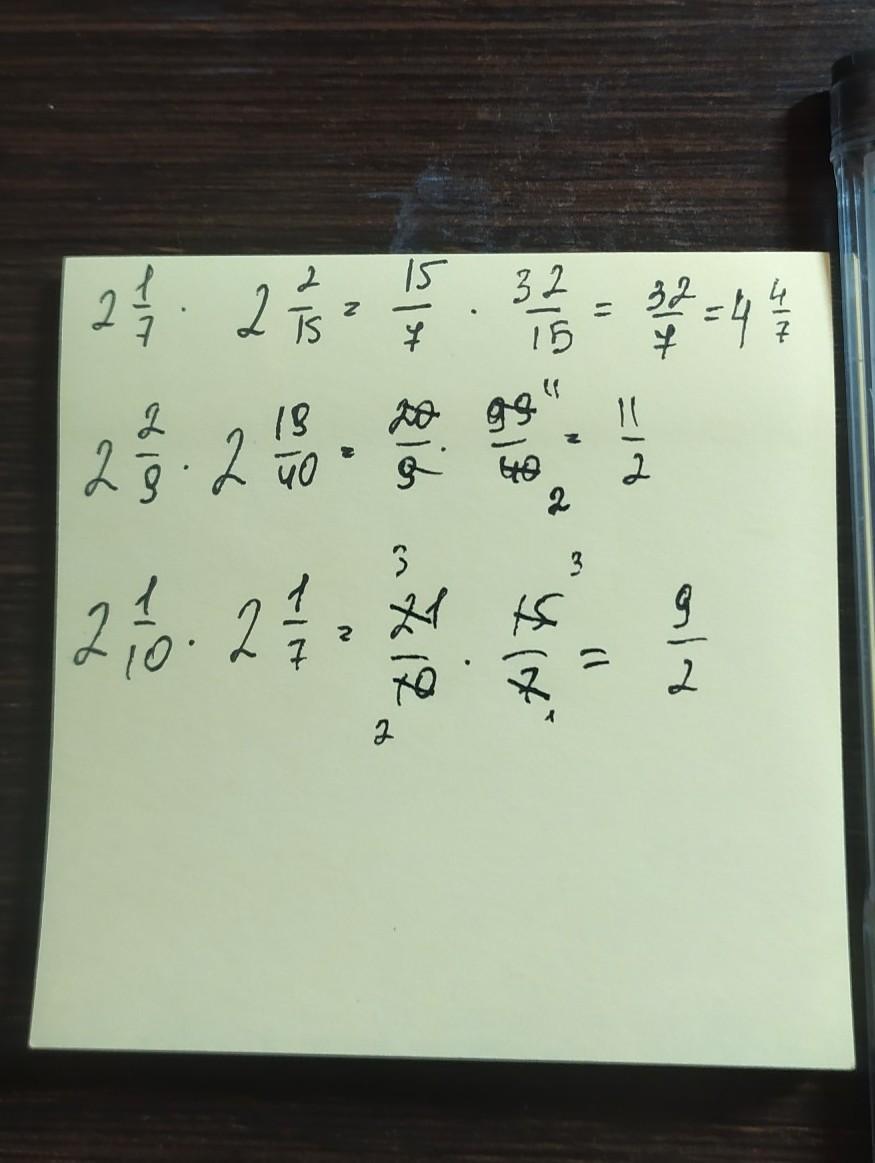 2 1/7 · 2 2/15 = 15/7 · 32/15 = 32/7 = 4 4/7
2 2/9 · 2 19/40 = 20/9 · 99/40 11 2 = 11/2
2 1/10 · 2 1/7 = 3 21/10 2 · 15/7 3 1 = 9/2